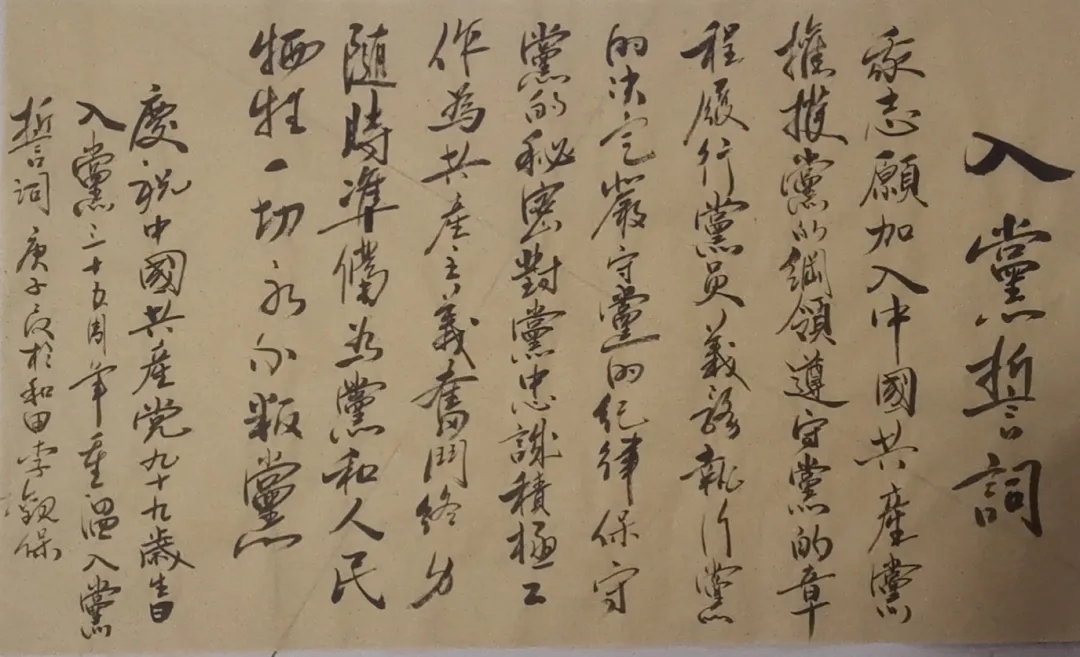 入黨誓詞
我志願加入中國共產黨
擁護黨的綱領遵守黨的章
程履行黨員義務執行黨
的決定嚴守黨的紀律保守
黨的秘密對黨忠誠積極工
作為共產主義奮鬥終身
隨時準備為黨和人民
牺牲一切永不叛黨
慶祝中國共產党九十九歲生日
入黨三十五周年重溫入黨
誓詞庚子夏於和田李觀保